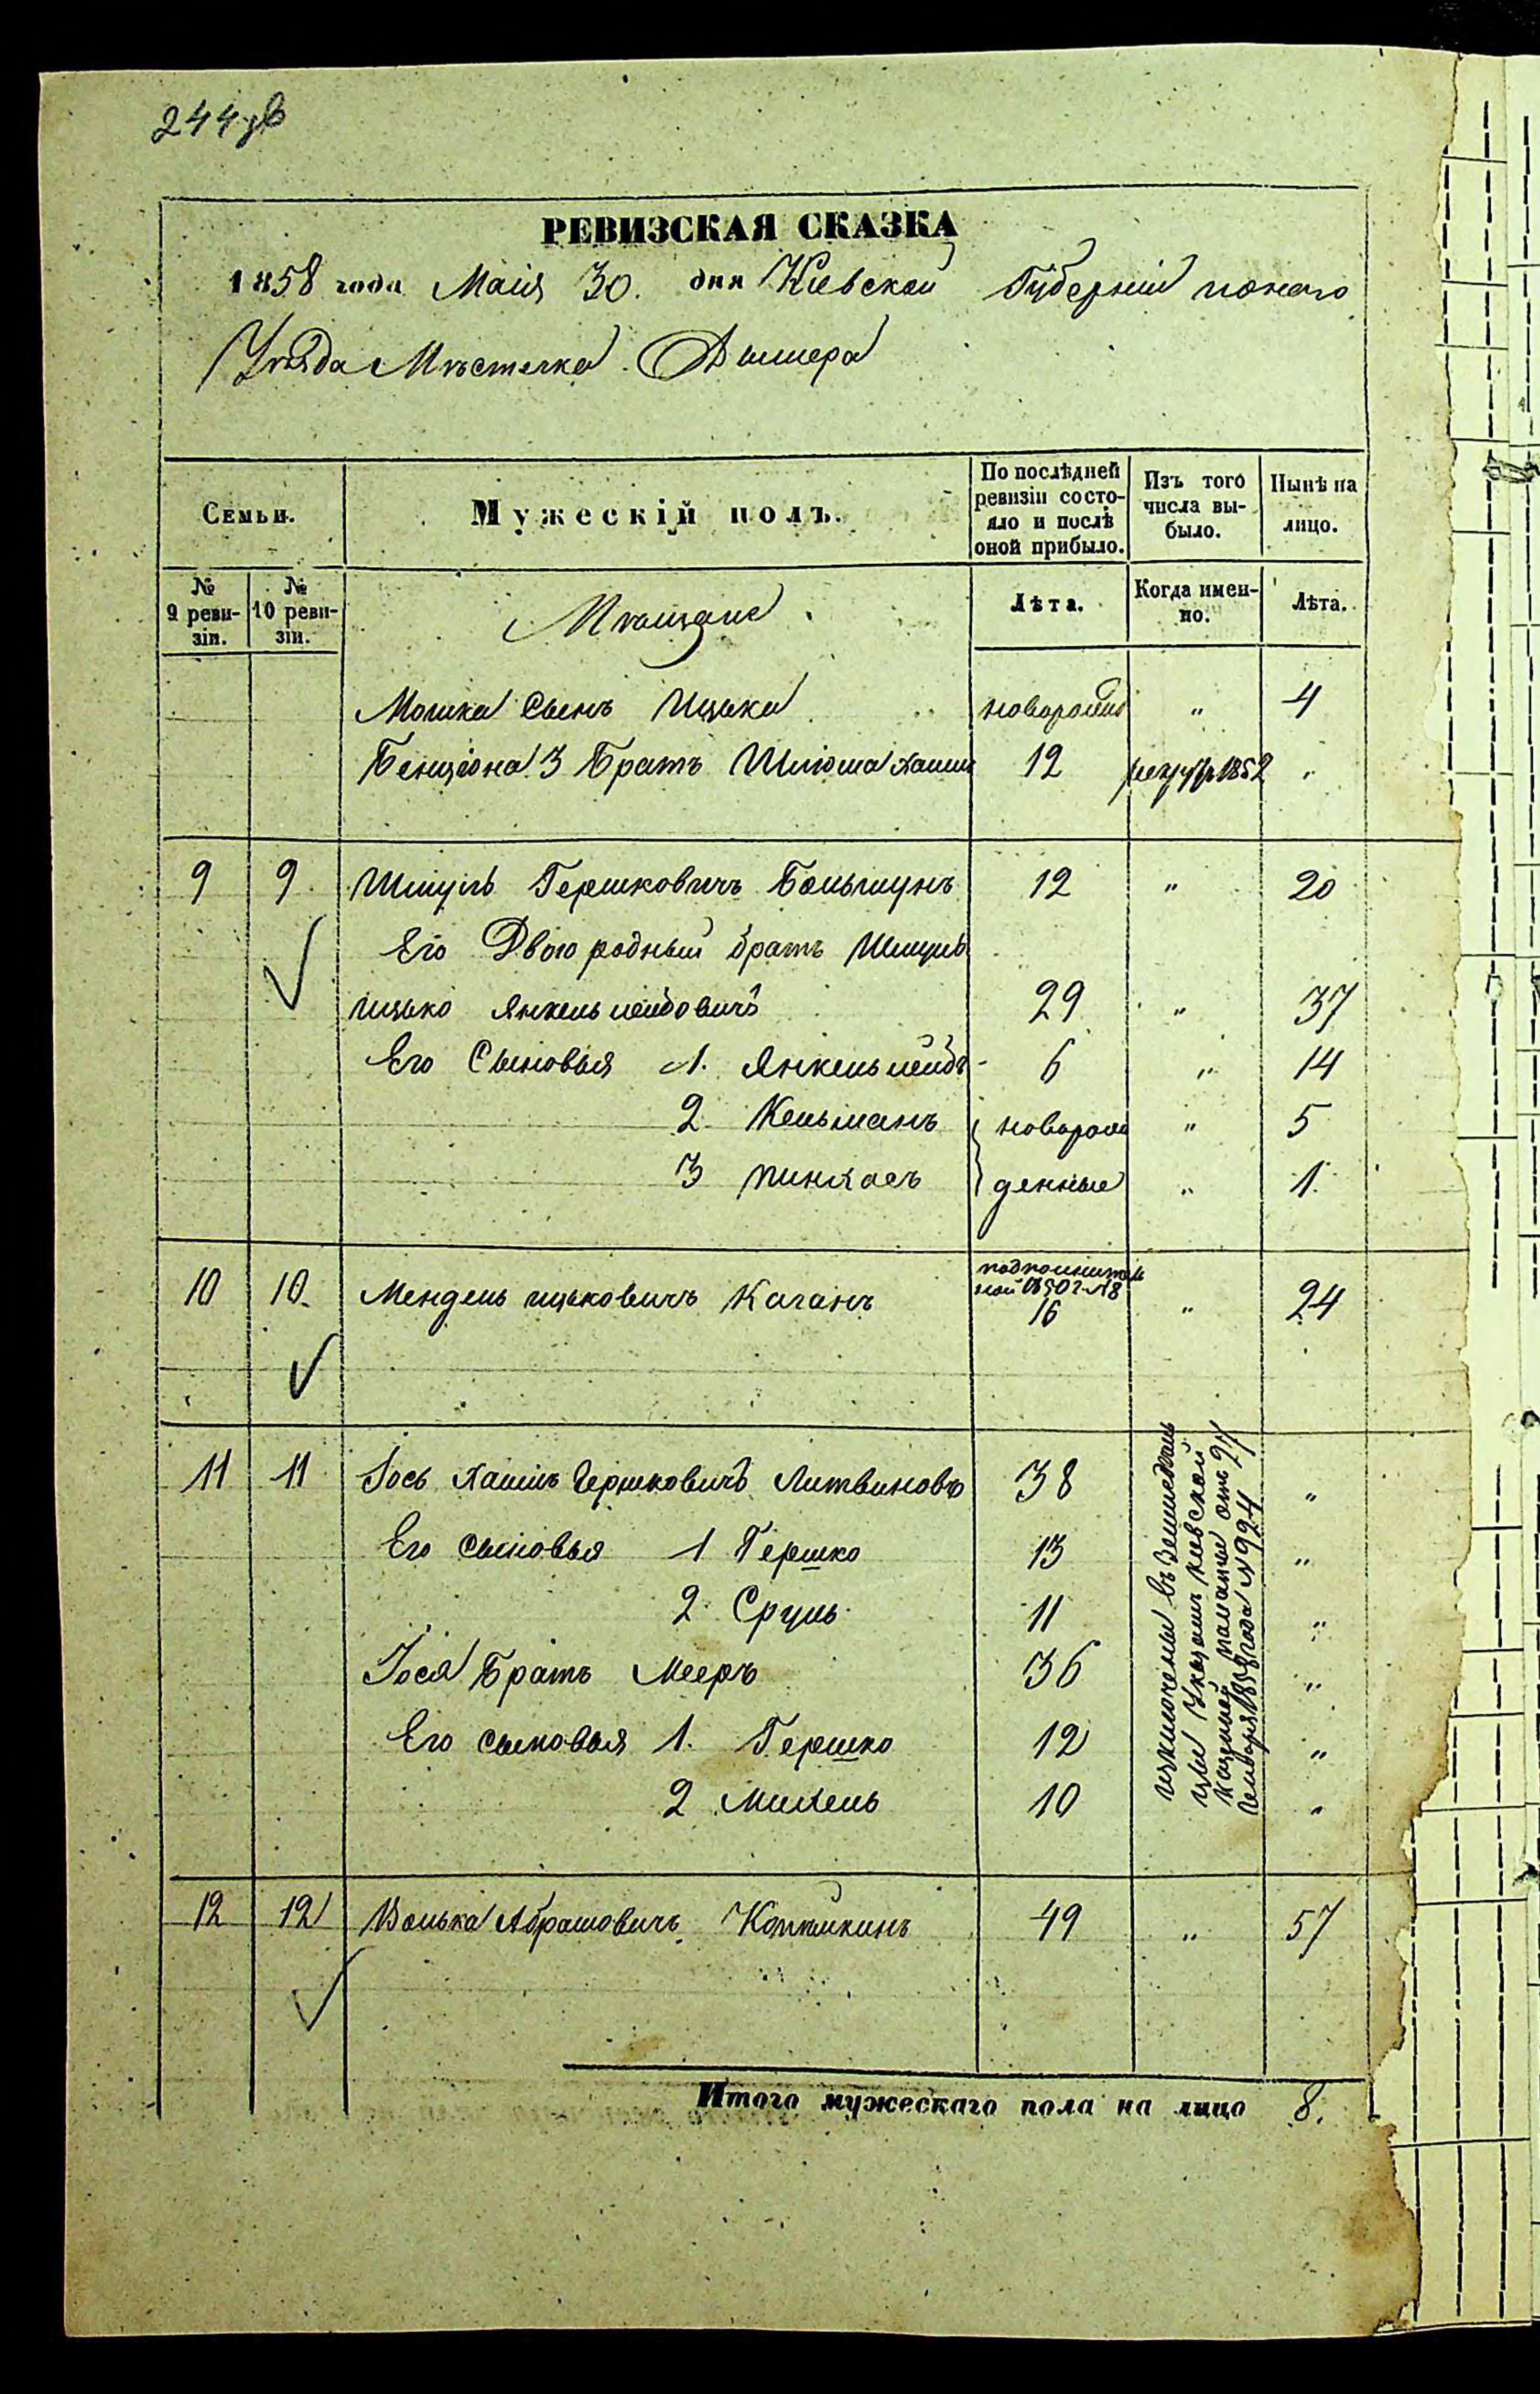 244
РЕВИЗСКАЯ СКАЗКА
1858 года Маія 30. дня Кіевской Губерніи тожъ
Уѣзда Мѣстечка Дымера
Семьи.
Мужескій полъ.
По послѣдней ревизіи состояло и послѣ оной прибыло.
Изъ того числа выбыло.
Нынѣ на лицо.
№ 9 ревизіи.
№ 10 ревизіи.
Мѣщане
Лѣта.
Когда именно.
Лѣта.
Мошка Сынъ Ицько новорожд " 4
Бенціона 3 Братъ Шліома Хаимъ 12 рекрут 1852 "
9 9 Шмуль Гершковичъ Большунъ 12 " 20
Его Двоюродный братъ Шмуль
ицько Янкельлейбовичъ 29 " 37
Его Сыновья 1. Янкельлейбъ - 6 " 14
2 Кельманъ новорож " 5
3 пинхасъ денные " 1.
10 10. Мендель ицьковичъ Каганъ 16 " 24
11 11 Іось Хаимъ Гершковичъ Литвиновъ 38 "
Его сыновья 1 Гершко 13 "
2 Сруль 11 "
Іося Братъ Мееръ 36 "
Его сыновья 1. Гершко 12 "
2 Михель 10 "
изключены въ Земледѣль
цы Указомъ Кіевской
Казенной палаты отъ 27
Генваря 1853 года №924
12 12 Волька Абрамовичъ 49 " 57
Итого мужескаго пола на лицо 8.